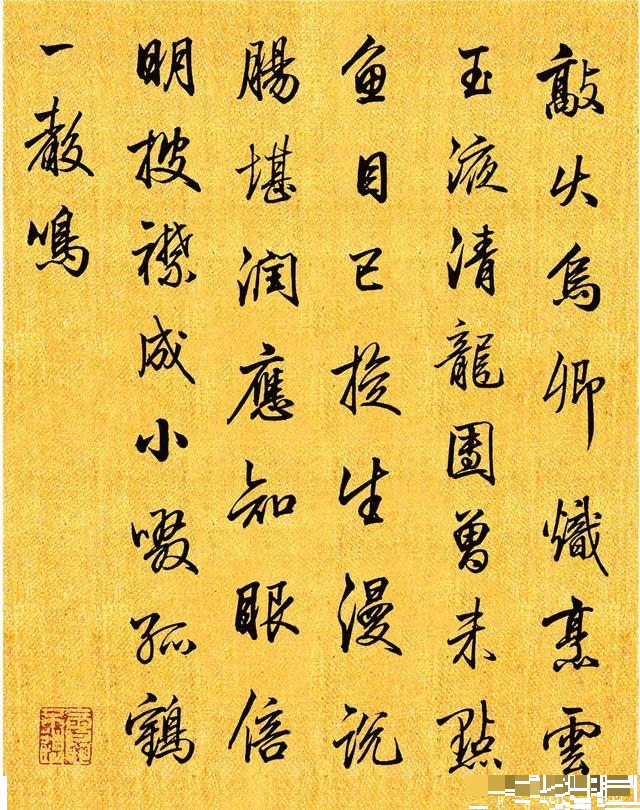 敲火烏卿熾烹雲
玉液清龍團曾未點
魚目已旋生漫說
腸堪潤應知眼倍
明搜襟成小啜孤鶴
一聲鳴